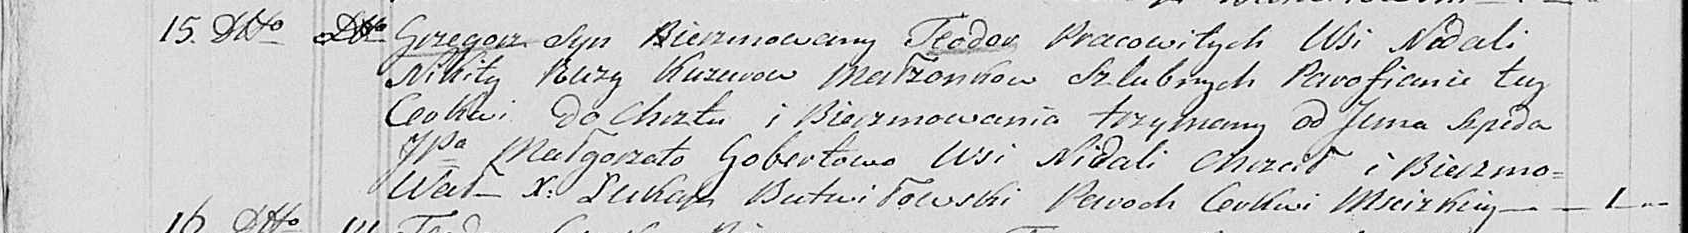 15. Dtto Dtto Grzegorz Syn Bierzmowany Teodor Pracowitych Wsi Nidali
Nikity Ruzy Kuzurow Małzonkow Szlubnych Parofianie tey
Cerkwi do Chrztu i Bierzmowania trzymany od Jmna
JPa Małgorzato Gobertowo Wsi Nidali Chrzcił i Bierzmo=
Wał X: Lukasz Butwiłowski Paroch Cerkwi Mscizkiey — 1 —
16 Dtto